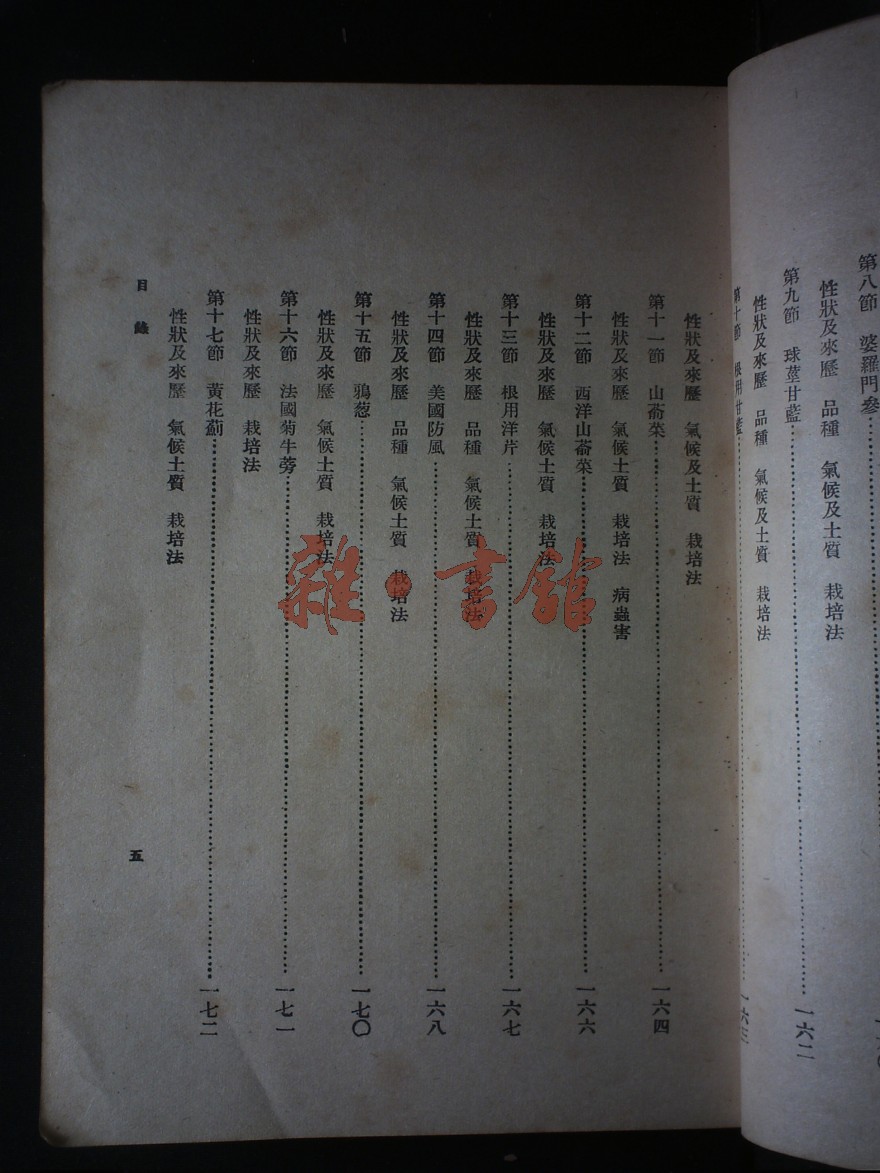 第八節　婆羅門參
性狀及來歷　品種　氣候及土質　栽培法
第九節　球莖甘藍……一六二
性狀及來歷　品種　氣候及土質　栽培法
第十節　根用甘藍……一六三
性狀及來歷　氣候及土質　栽培法
第十一節　山萮菜……一六四
性狀及來歷　氣候土質　栽培法　病蟲害
第十二節　西洋山萮菜……一六六
性狀及來歷　氣候土質　栽培法
第十三節　根用洋芹……一六七
性狀及來歷　品種　氣候土質　栽培法
第十四節　美國防風……一六八
性狀及來歷　品種　氣候土質　栽培法
第十五節　鴉葱……一七〇
性狀及來歷　氣候土質　栽培法
第十六節　法國菊牛蒡……一七一
性狀及來歷　栽培法
第十七節　黃花薊……一七二
性狀及來歷　氣候土質　栽培法
目錄
五
雜·書館